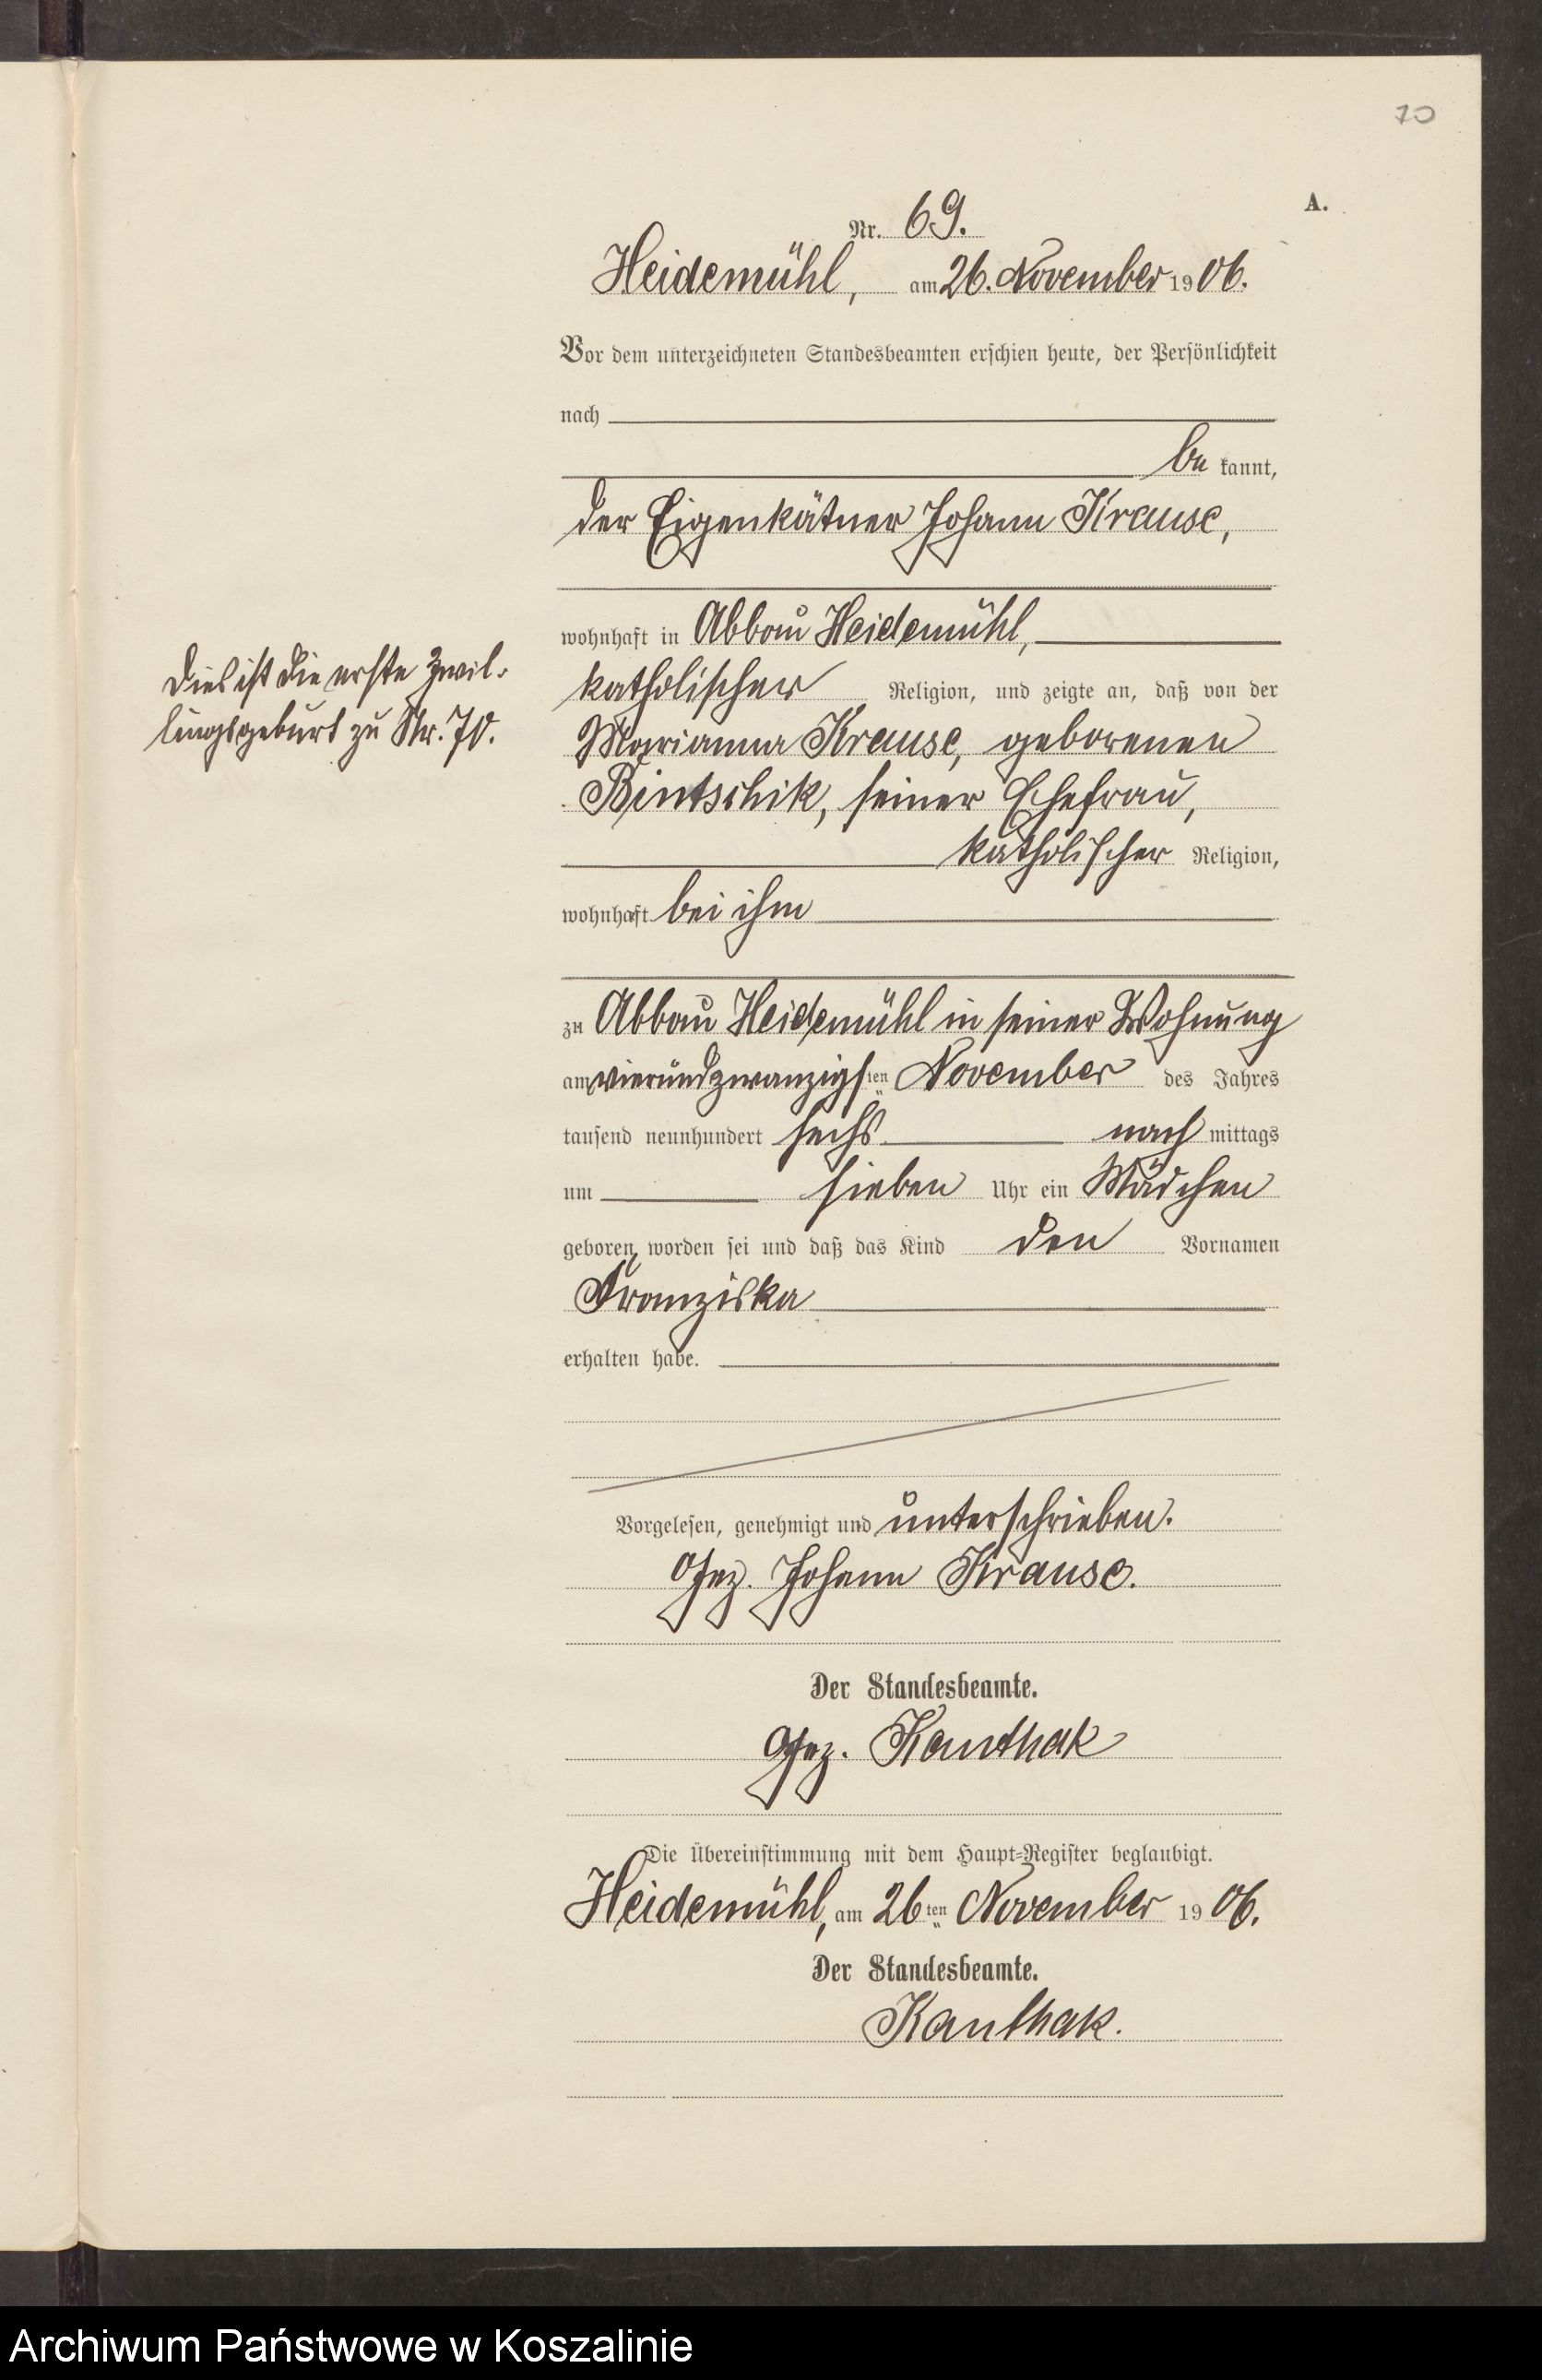 70
A.
Nr. 69.
Heidemühl, am 26. November 1906.
Vor dem unterzeichneten Standesbeamten erschien heute, der Persönlichkeit
nach
be kannt,
der Eigenkätner Johann Krause,
wohnhaft in Abbau Heidemühl,
katholischer Religion, und zeigte an, daß von der
Marianna Krause, geborenen
Bintschik, seiner Ehefrau,
katholischer Religion,
wohnhaft bei ihm
Dies ist die erste Zwil-
lingsgeburt zu Nr. 70.
zu Abbau Heidemühl in seiner Wohnung
am vierundzwanzigsten November des Jahres
tausend neunhundert sechs nach mittags
um sieben Uhr ein Mädchen
geboren worden sei und daß das Kind den Vornamen
Franziska
erhalten habe.
Vorgelesen, genehmigt und unterschrieben.
Gez. Johann Krause.
Der Standesbeamte.
Gez. Kanthak
Die Übereinstimmung mit dem Haupt-Register beglaubigt.
Heidemühl, am 26ten November 1906.
Der Standesbeamte.
Kanthak.
Archiwum Państwowe w Koszalinie